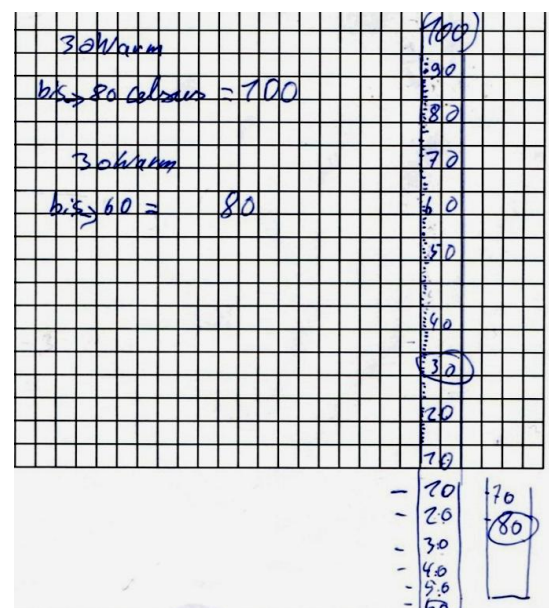 30Warm
bis→ 80 Celsius = 100
30Warm
bis→ 60 = 80
100
90
80
70
60
50
40
30
20
10
10
20
30
40
50
60
70
80